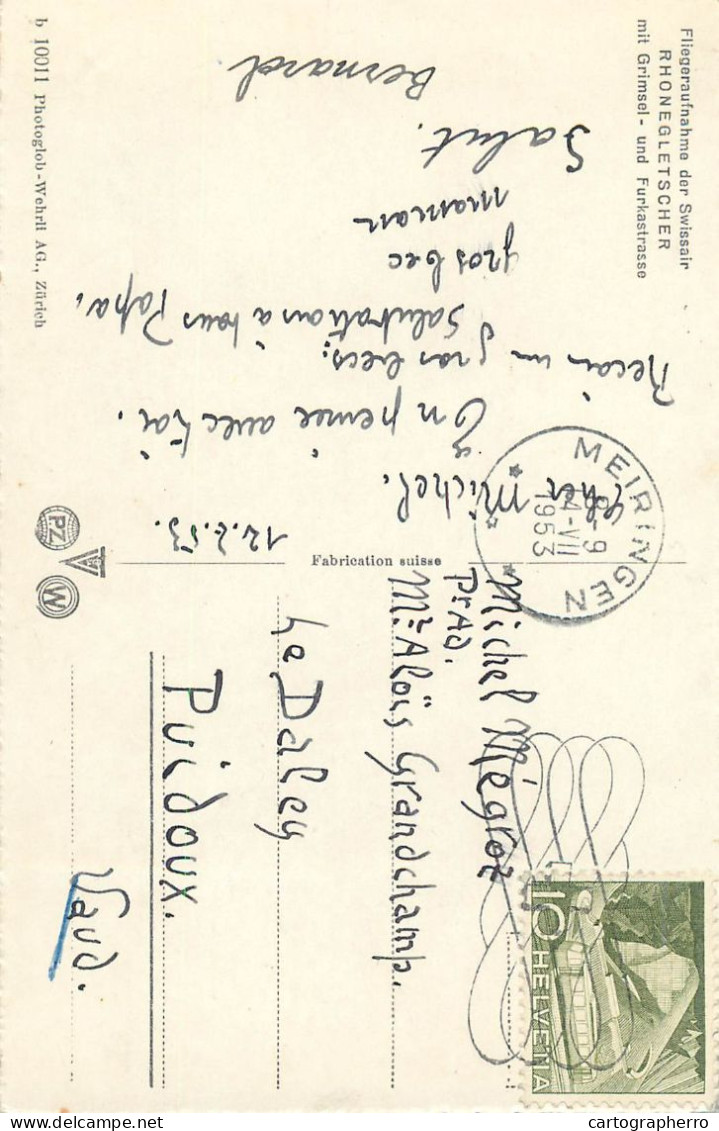 Fliegeraufnahme der Swissair
RHONEGLETSCHER
mit Grimsel- und Furkastrasse
12.2.53.
Cher Michel.
On pense avec toi.
Reçois un gros becs.
Salutations à tous Papa.
gros bec
maman
Salut.
Bernard
b 10011 Photoglob-Wehrli AG., Zürich
PZ
W
Fabrication suisse
MEIRINGEN
-9
-VII
1953
10
HELVETIA
Michel Mégroz
pr Ad.
Mr. Aloïs Grandchamp.
Le Daley
Puidoux.
Vaud.
cartographerro